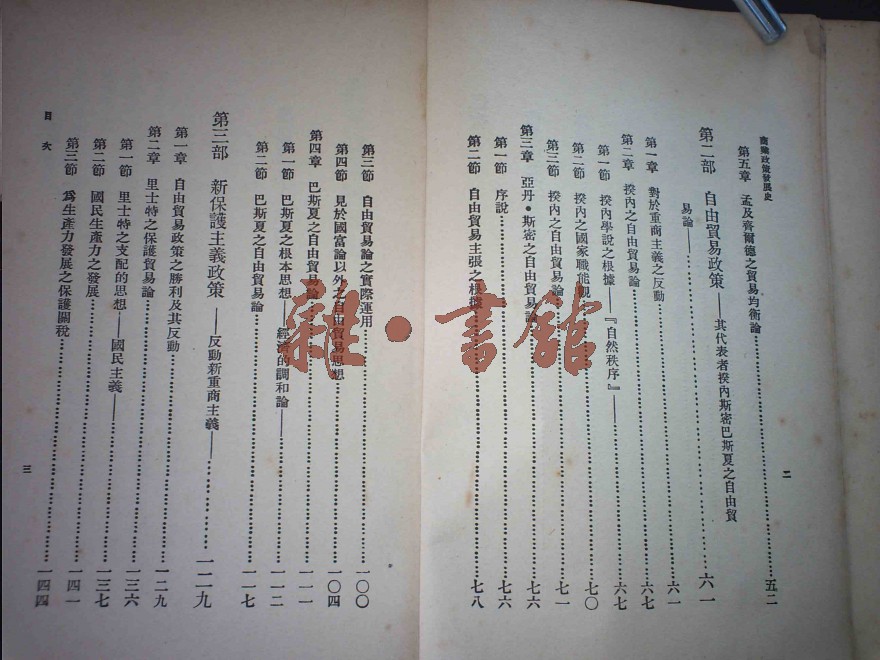 商業政策發展史
二
第五章 孟及齊爾德之貿易均衡論……五二
第二部 自由貿易政策——其代表者揆內斯密巴斯夏之自由貿
易論——……六一
第一章 對於重商主義之反動……六一
第二章 揆內之自由貿易論……六七
第一節 揆內學說之根據——『自然秩序』——……六七
第二節 揆內之國家職能觀……七〇
第三節 揆內之自由貿易論……七一
第三章 亞丹・斯密之自由貿易論……七六
第一節 序說……七六
第二節 自由貿易主張之根據……七八
第三節 自由貿易論之實際運用……一〇〇
第四節 見於國富論以外之自由貿易思想……一〇四
第四章 巴斯夏之自由貿易論……一一一
第一節 巴斯夏之根本思想——經濟的調和論——……一一二
第二節 巴斯夏之自由貿易論……一一七
第三部 新保護主義政策——反動新重商主義——……一二九
第一章 自由貿易政策之勝利及其反動……一二九
第二章 里士特之保護貿易論……一三六
第一節 里士特之支配的思想——國民主義——……一三六
第二節 國民生產力之發展……一四一
第三節 為生產力發展之保護關稅……一四四
目次
三
雜・書館